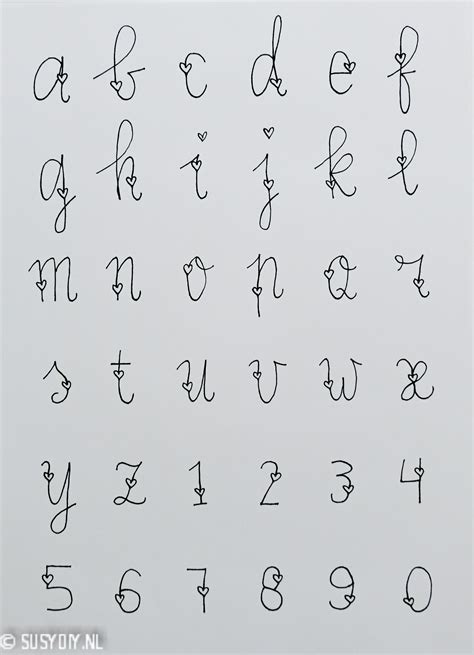 a b c d e f
g h i j k l
m n o p Q r
s t u v w x
y z 1 2 3 4
5 6 7 8 9 0
© SUSYDIY.NL